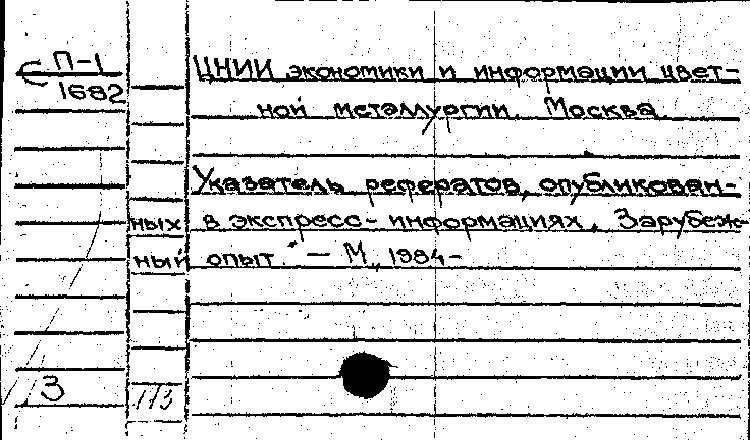 П-1
1682
ЦНИИ экономики и информации цвет-
ной металлургии. Москва.
Указатель рефератов, опубликован-
ных в экспресс-информациях. Зарубеж-
ный опыт. - М., 1984-
3
113